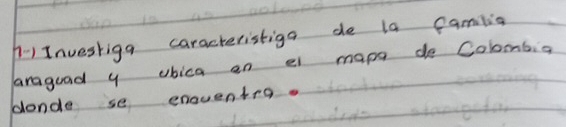 1-) Investiga caracteristiga de la familia
araguad y ubica en el mapa de Colombia
donde se enouentra.